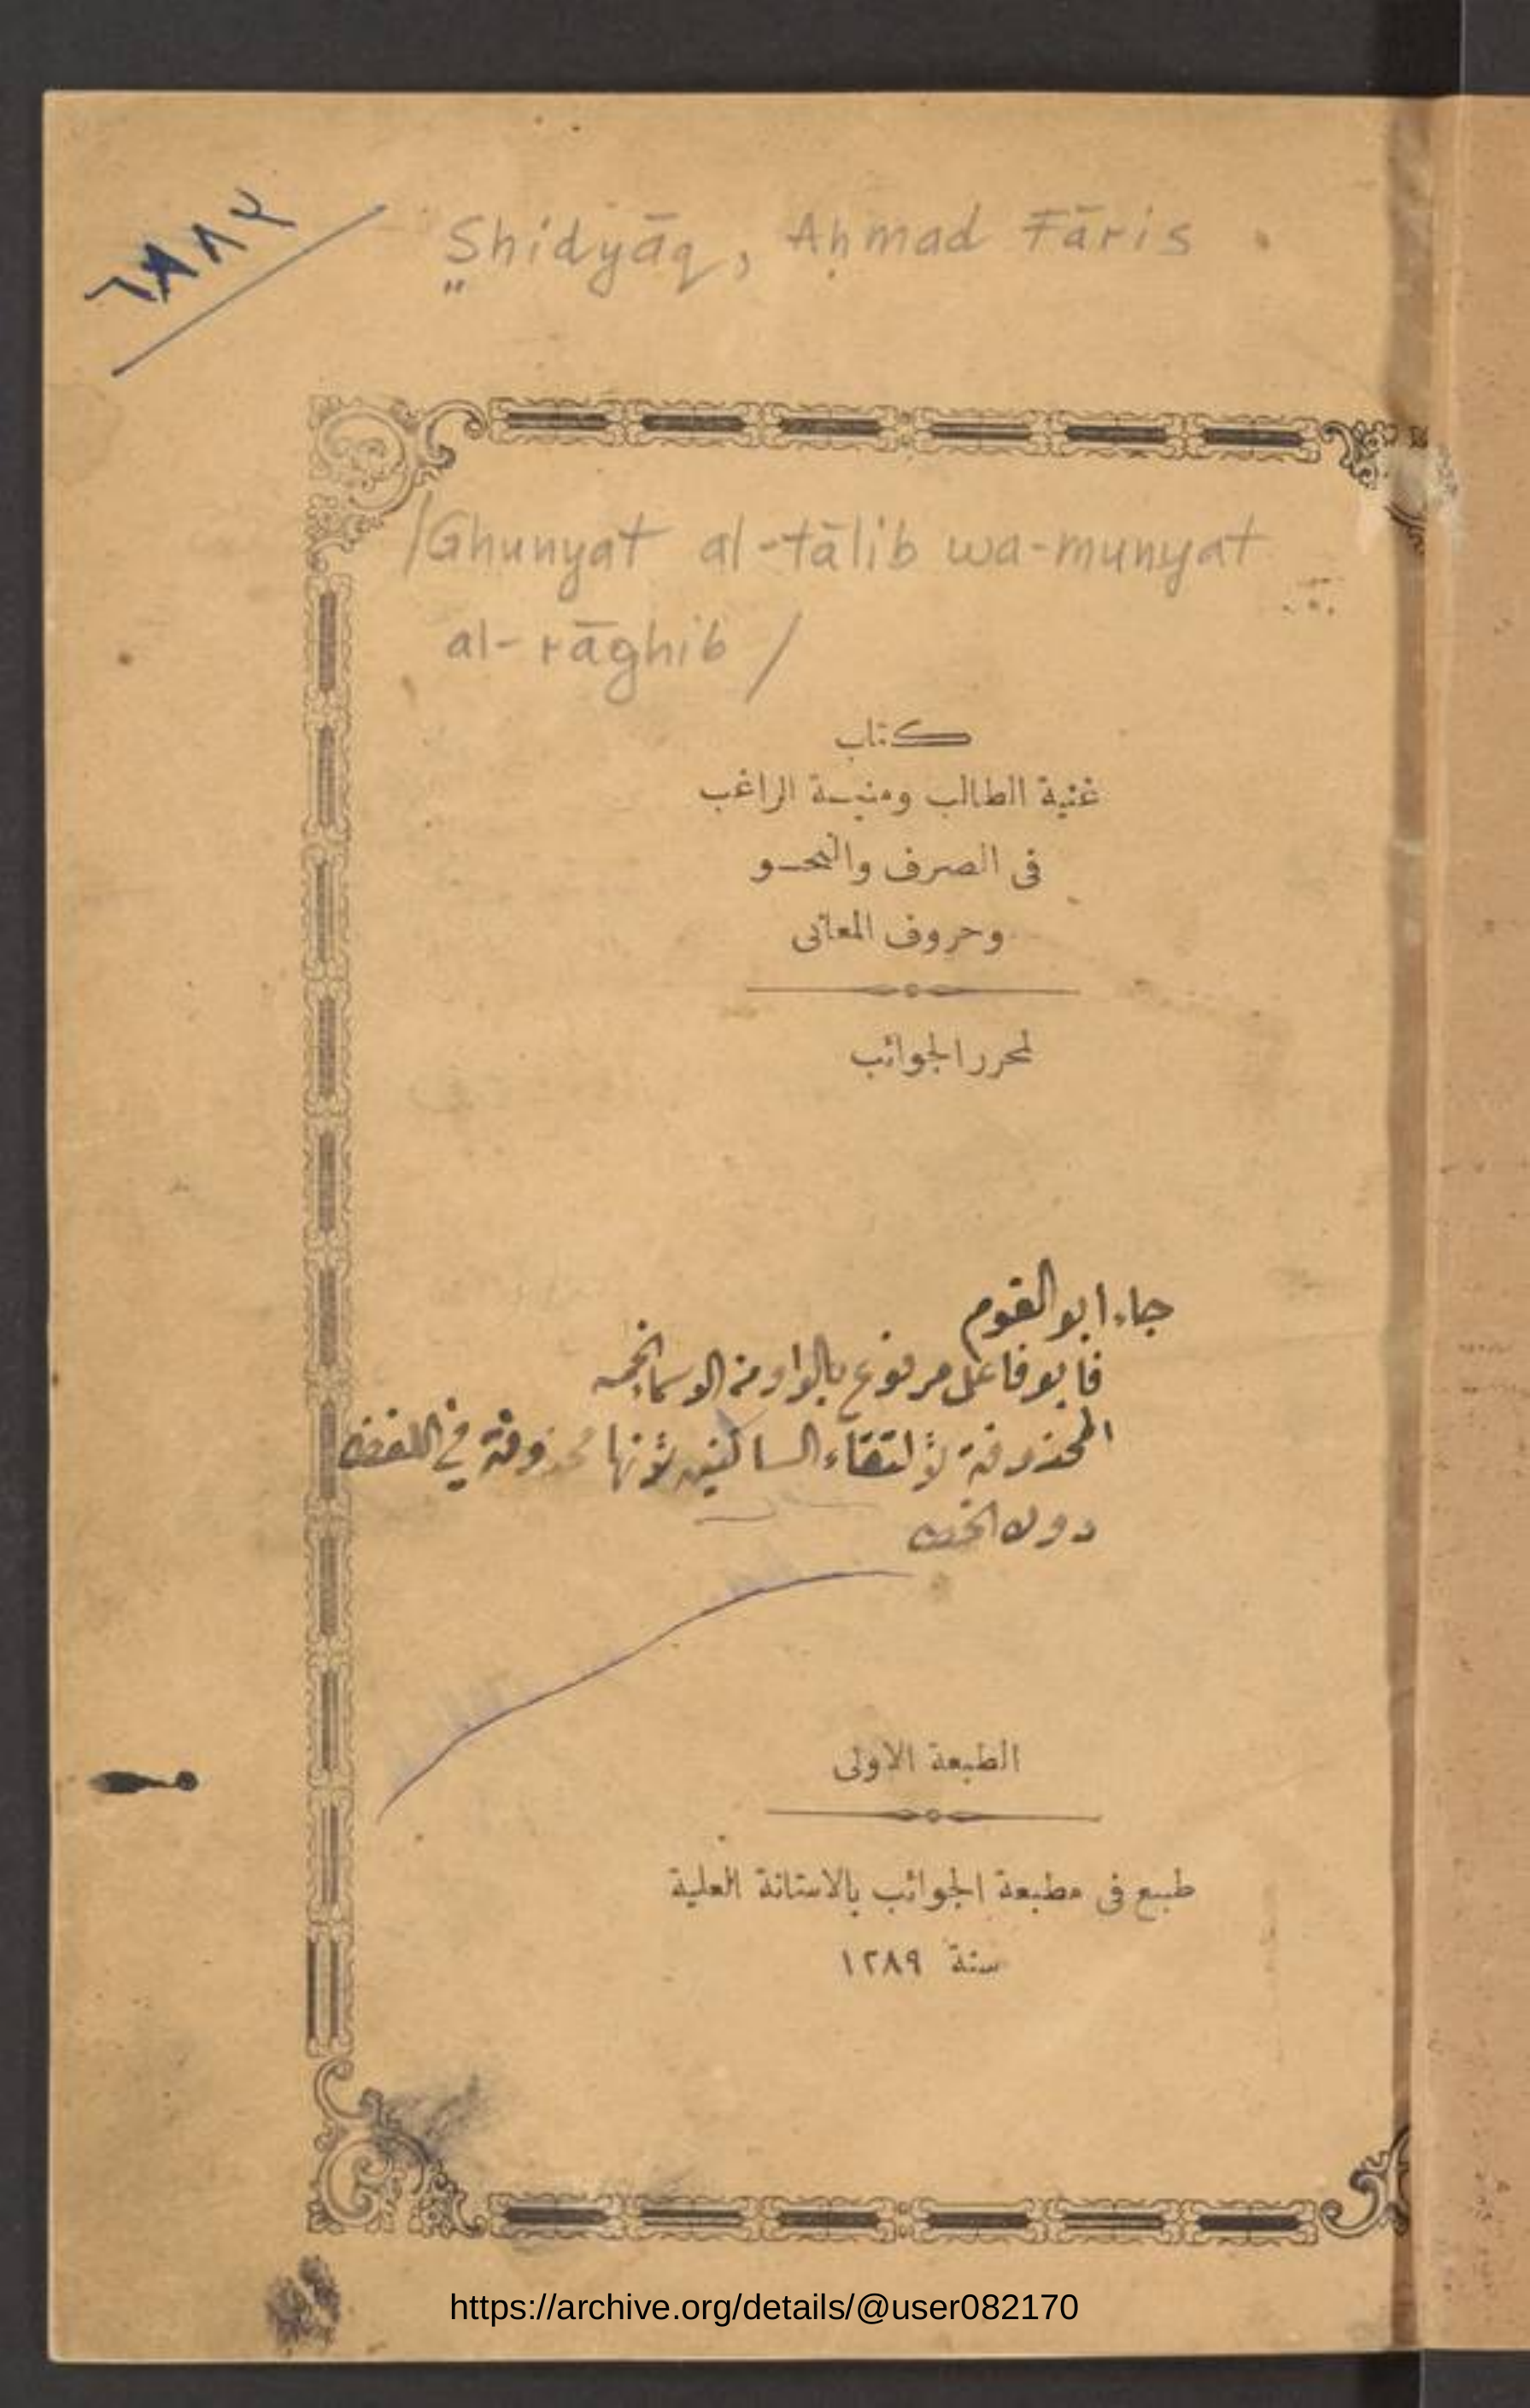 ٦٨٨٢
S̤hidyāq, Aḥmad Fāris
/Ghunyat al-tālib wa-munyat
al-rāghib /
كتاب
غنية الطالب ومنية الراغب
فى الصرف والنحو
وحروف المعانى
لمحرر الجوائب
جاء ابو القوم
فابو فاعل مرفوع بالواو من الاسماء الخمسه
المحذوفة لالتقاء الساكنين لانها محذوفة في اللفظ
دون الخط
الطبعة الاولى
طبع فى مطبعة الجوائب بالاستانة العلية
سنة ١٢٨٩
https://archive.org/details/@user082170